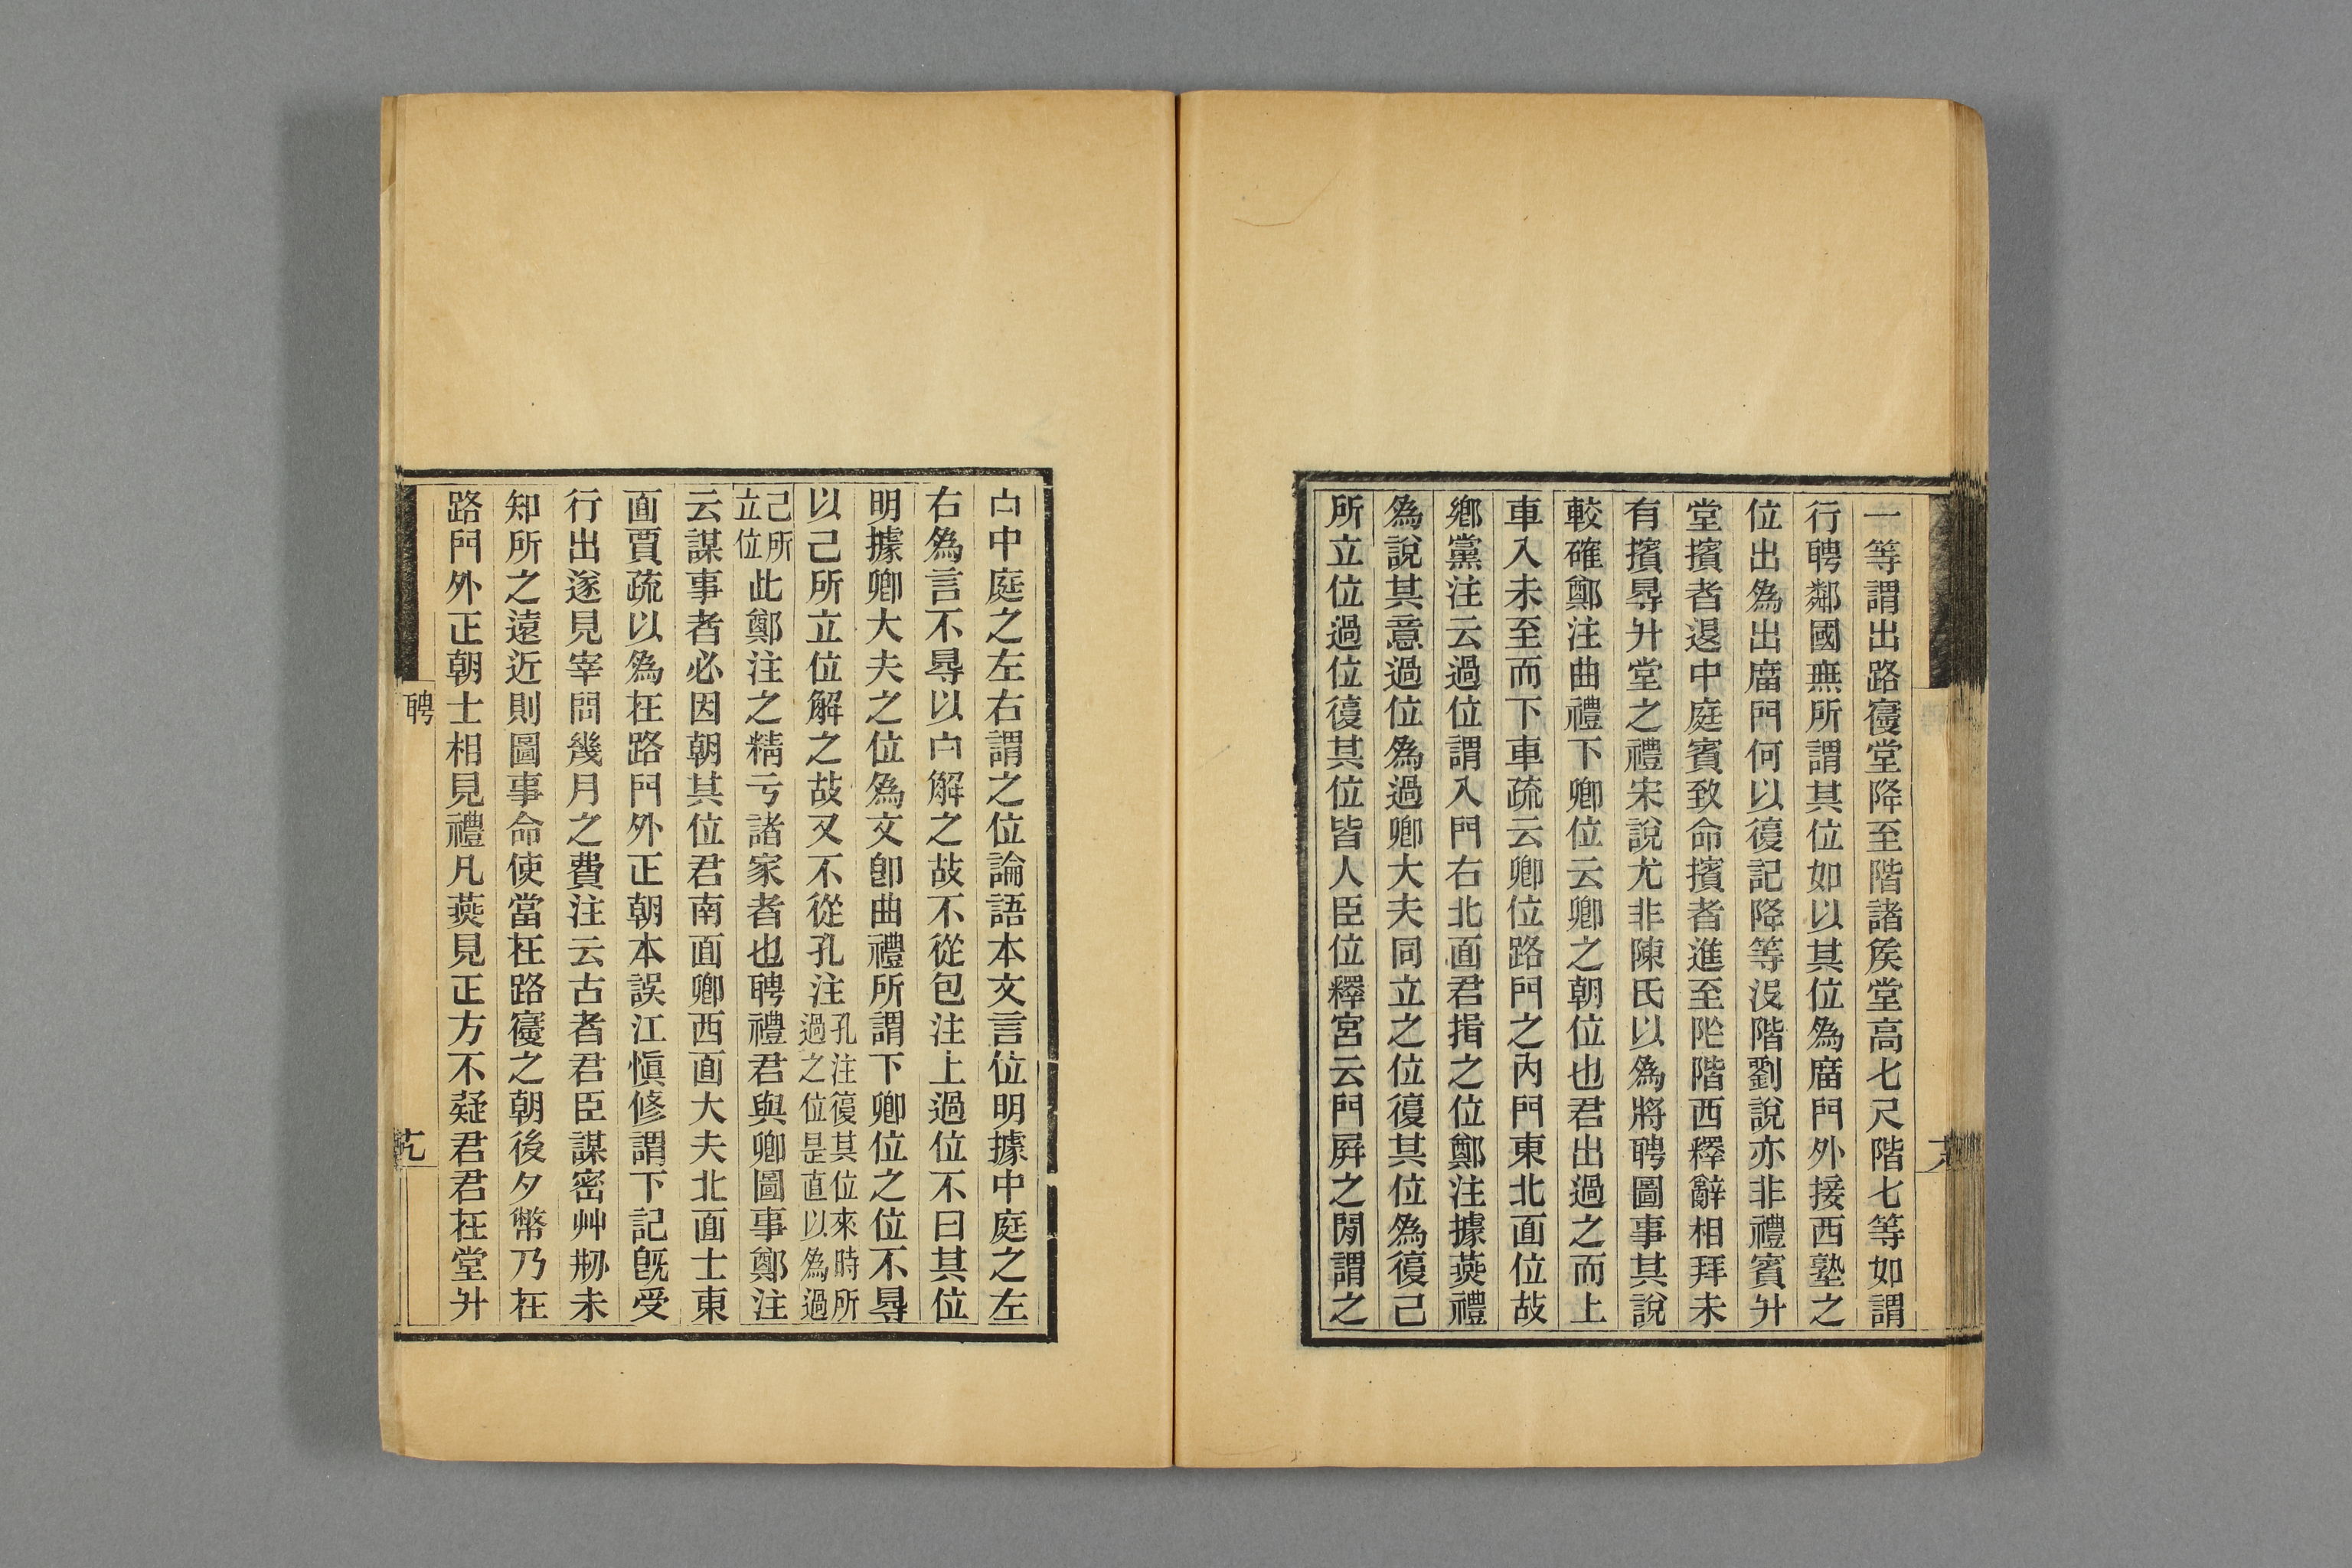 一等謂出路寑堂降至階諸矦堂高七尺階七等如謂
行聘鄰國無所謂其位如以其位為庿門外接西塾之
位出為出庿門何以復記降等沒階劉說亦非禮賓升
堂擯者退中庭賓致命擯者進至阼階西釋辭相拜未
有擯㝵升堂之禮宋說尤非陳氏以為將聘圖事其說
較確鄭注曲禮下卿位云卿之朝位也君出過之而上
車入未至而下車疏云卿位路門之內門東北面位故
鄉黨注云過位謂入門右北面君揖之位鄭注據燕禮
為說其意過位為過卿大夫同立之位復其位為復己
所立位過位復其位皆人臣位釋宮云門屏之閒謂之
宁中庭之左右謂之位論語本文言位明據中庭之左
右為言不㝵以宁解之故不從包注上過位不曰其位
明據卿大夫之位為文卽曲禮所謂下卿位之位不㝵
以己所立位解之故又不從孔注孔注復其位來時所過之位是直以為過
己所立位此鄭注之精亏諸家者也聘禮君與卿圖事鄭注
云謀事者必因朝其位君南面卿西面大夫北面士東
面賈疏以為在路門外正朝本誤江愼修謂下記旣受
行出遂見宰問幾月之費注云古者君臣謀密艸剏未
知所之遠近則圖事命使當在路寑之朝後夕幣乃在
路門外正朝士相見禮凡燕見正方不疑君君在堂升
聘